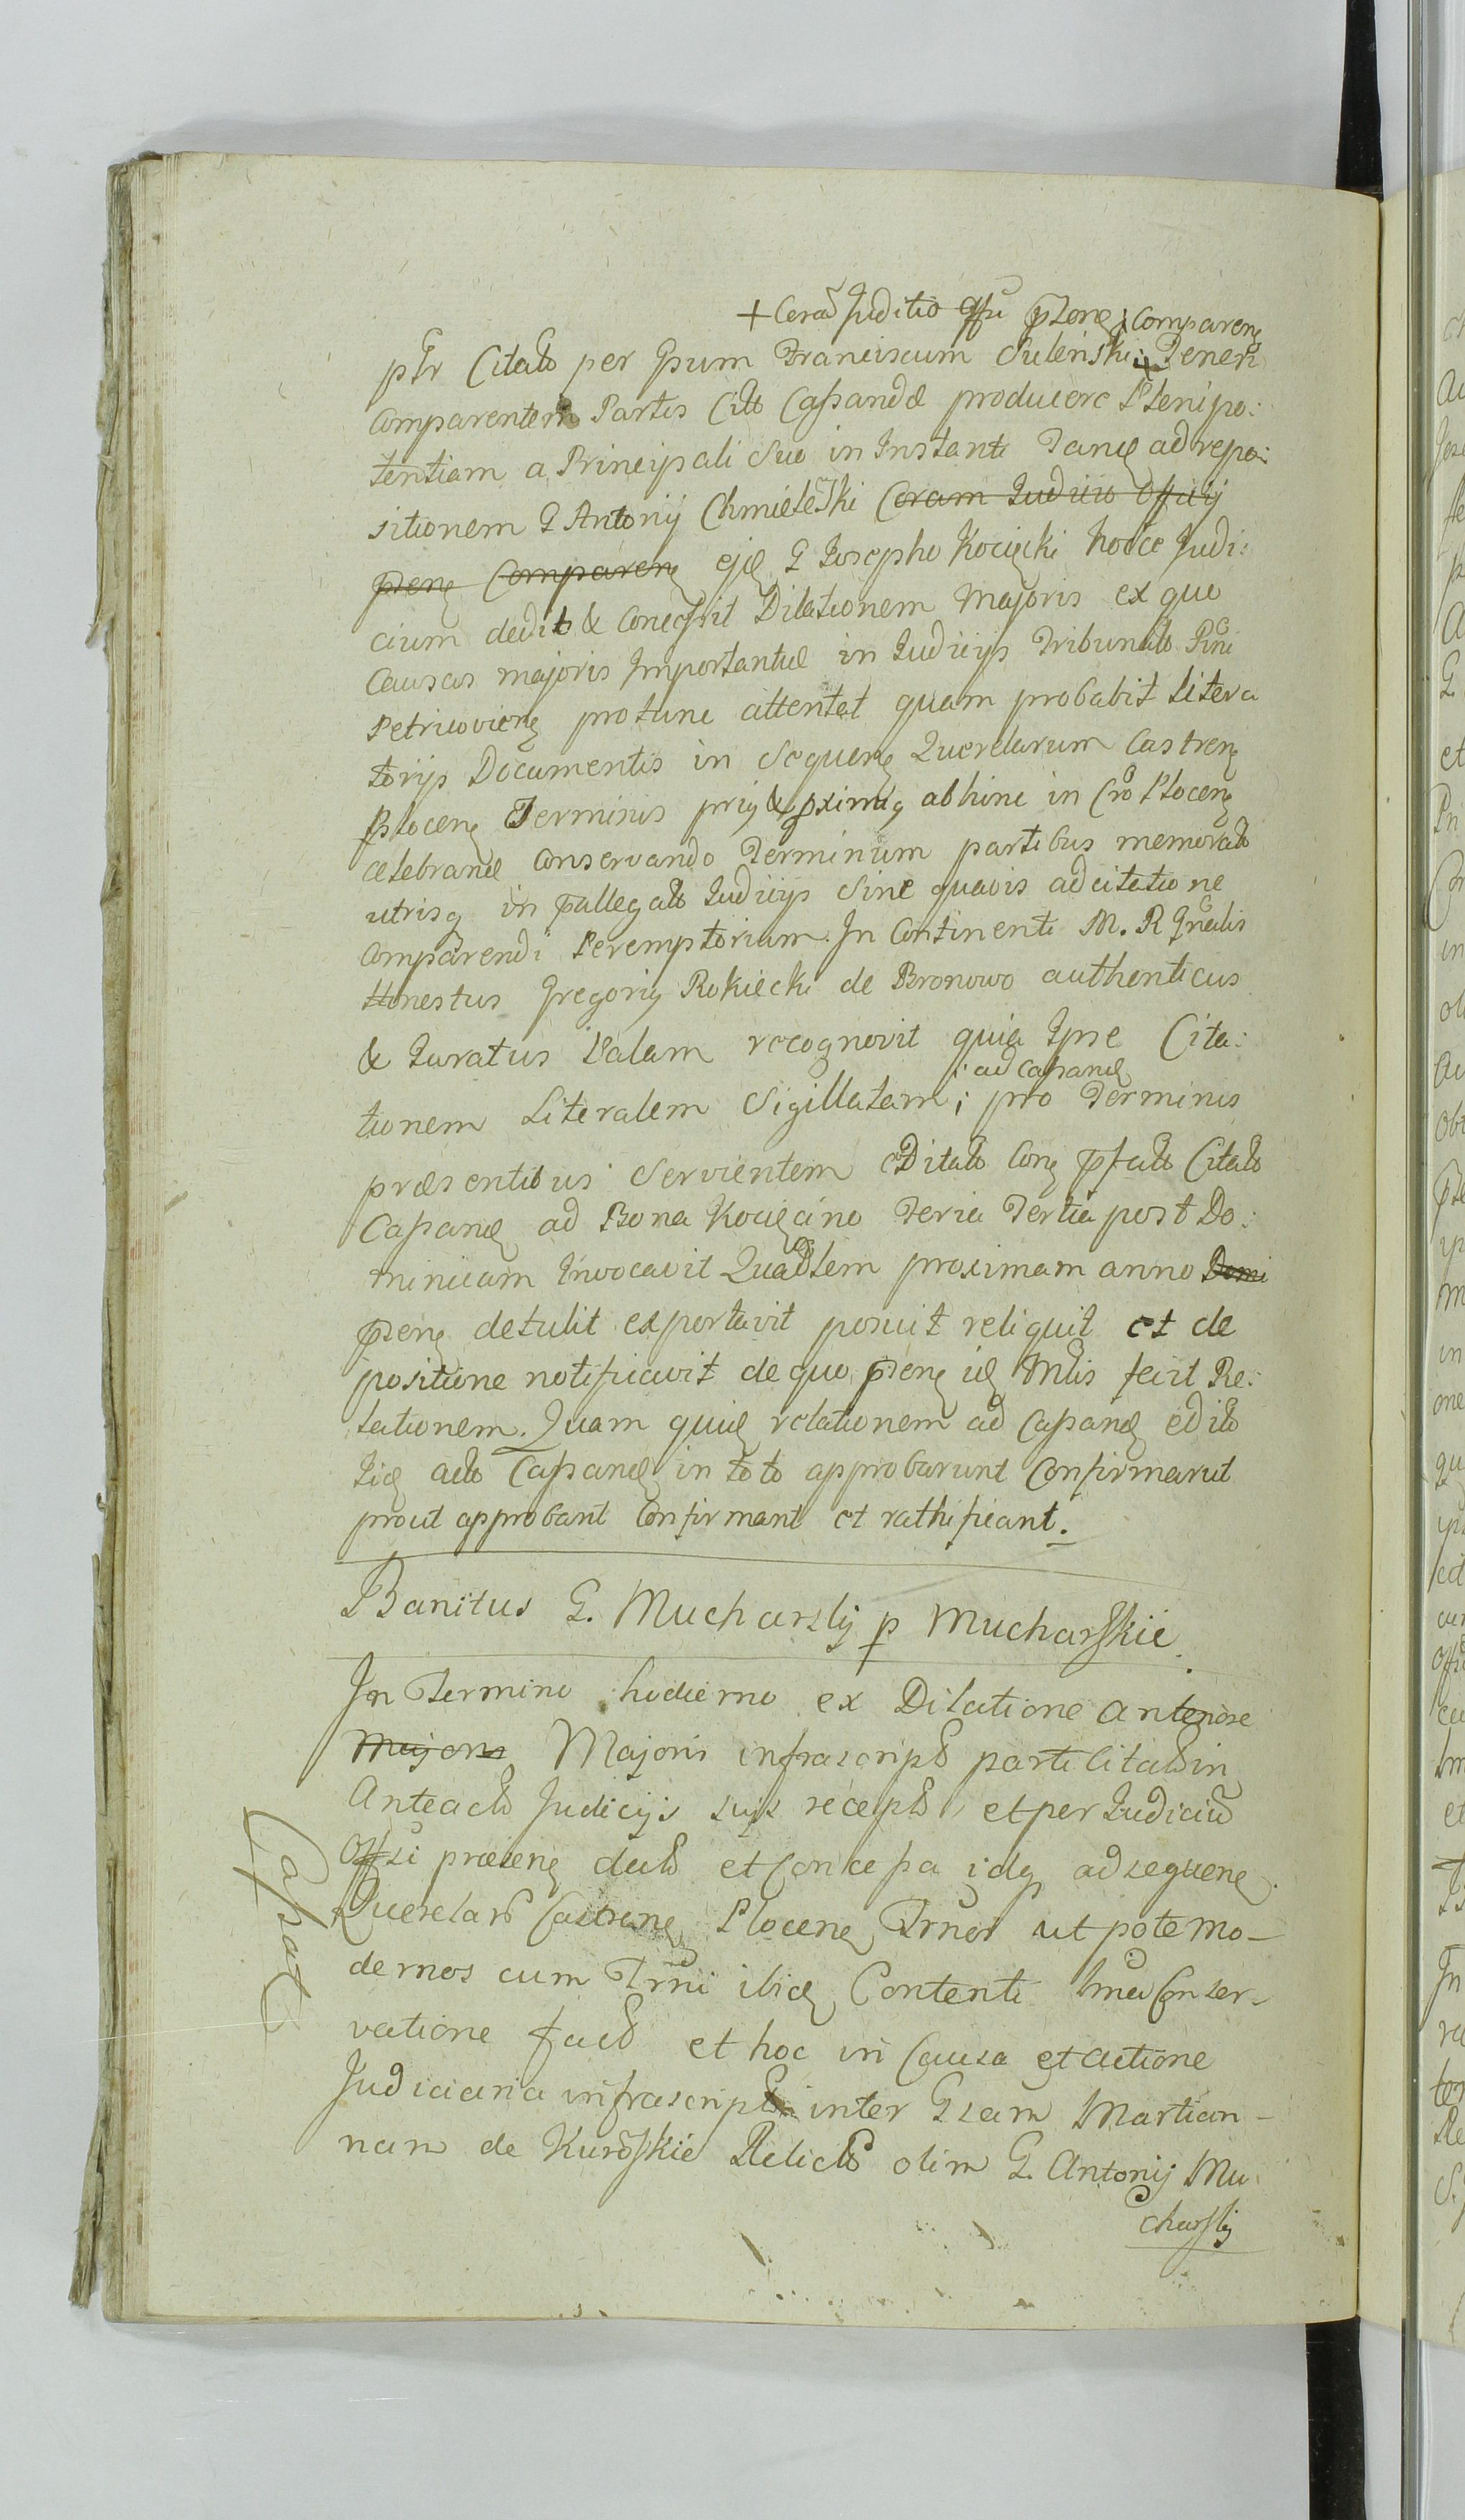 + Corã Juditio Offi p̃sene; compareñ
ptr Citato per Gsum Franciscum Suleński; + Teneri
comparentem Partis Cito Cassandæ producere Plenipo:
tentiam a Principali Suo in Instanti Tanq ad repo:
sitionem G Antonij Chmieleski Coram Judicio Officij
p̃sene Comparene ejq G Josepho Kocięcki hocce Judi:
cium dedit & Concessit Dilationem Majoris ex quo
causas majoris Importantiæ in Judicijs Tribunal
Petricoviene protunc attentet quam probabit litera
torijs Documentis in Sequene Querelarum Castrene
Plocene Terminis prig & pximig abhinc in Cro Plocene
celebrand conservando Terminum partibus memorato
utrisq in p̃allegato Judicijs Sine quavis adcitatione
comparendi Peremptorium. In Continenti M. R Gnalis
Honestus Gregorig Rokiecki de Bronowo authenticus
& Juratus Palam recognovit quia Ipse Cita:
; ad Cassand
tionem Literalem Sigillatam; pro Terminis
præsentibus Servientem Editato Cone p̃fato Citato
Cassand ad Bona Kocięcino Feria Tertia post Do:
minicam Invocavit Quadlem proximam anno Domi
p̃sene detulit exportavit posuit reliquit et de
positione notificavit de quo p̃sene id Mlis fecit Re:
lationem. Quam quid relationem ad Cassand edito
Jid acto Cassand in toto approbarunt Confirmarut
prout approbant Confirmant et rathificant.
Banitus G. Mucharslij p Mucharskie.
In Termino hodierno ex Dilatione anteriore
Majoris Majoris infrascript parti citato in
Anteacto Judicijs suis recepto, et per Judiciũ
Offsi præsene dato et Concessa idq ad sequene
Querelarũ Castrene Plocene Trnos ut pote mo-
dernos cum Trnĩ ibid Contenti Conser-
vatione facta et hoc in Causa et actione
Judiciaria infrascript inter Gsam Martian-
nam de Kurowskie Relicto olim G. Antonij Mu
charslij
Cassat